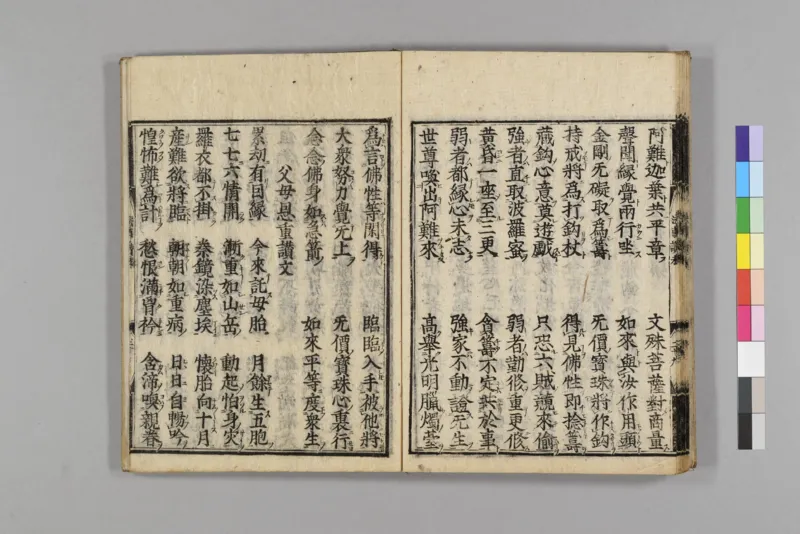 阿難迦葉共平章 文殊菩薩對商量
聲聞緣覺兩行坐 如來與汝作用頭
金剛无礙取為籌 无價寳珠將作鈎
持戒將為打鈎杖 得見佛性即捻籌
藏鈎心意莫遊戯 只恐六賊競來偷
強者直取波羅蜜 弱者勤修重更修
黄昏一座至三更 貪籌不定
弱者都緣心未志 強家不動證无生
世尊喚出阿難來 高舉光明臘燭臺
為言佛性等閑得 臨臨入手被他將
大衆努力覺无上 无價寳珠心裏行
念念佛身如急箭 如來平等度衆生
父母恩重讃文
累劫有因緣 今來託母胎 月餘生五胞
七七六情開 漸重如山岳 動起怕身灾
羅衣都不掛 秦鏡染塵埃 懷胎向十月
産難欲將臨 朝朝如重病 日日自㫾吟
惶怖難為計 愁恨滿胷衿 含渧嗅親眷